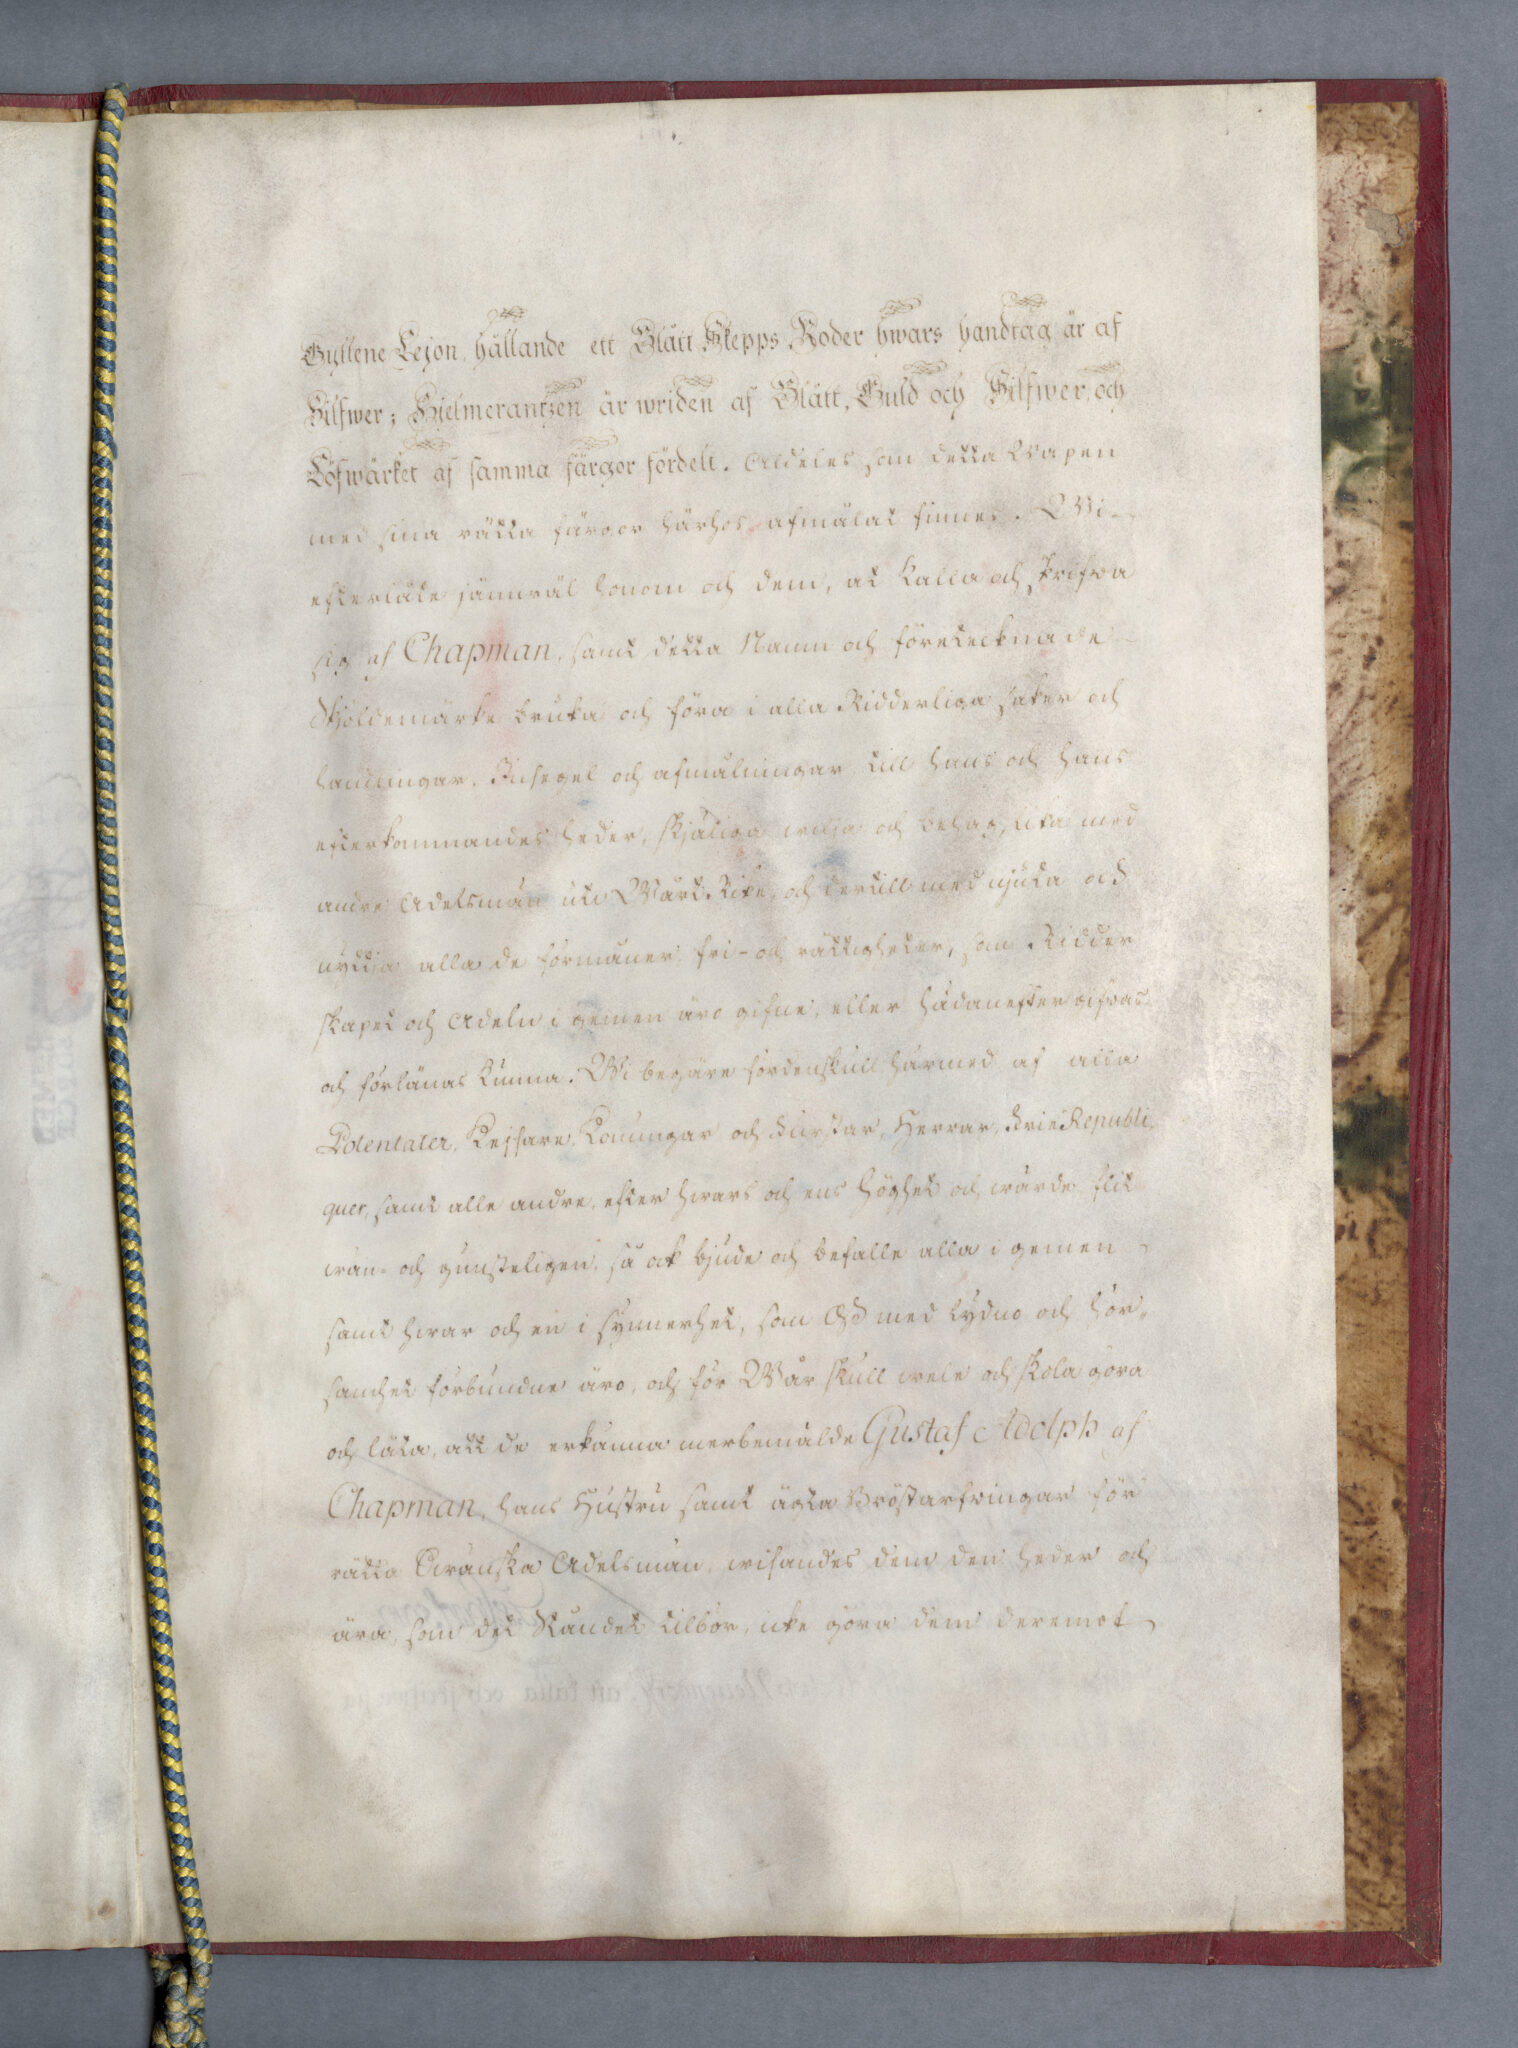 Gyllene Lejon, hållande ett Blått Skepps Roder hwars handtag är af
Silfwer; Hjelmerantzen är wriden af Blått, Guld och Silfwer, och
Löfwärket af samma färger fördelt. Aldeles som detta Wapen
med sina rätta färgor härhos afmålat finnes. Wi
efterlåte jämwäl honom och dem, at kalla och skrifwa
sig af Chapman, samt detta Namn och företecknade
Skjöldemärke bruka och föra i alla Ridderliga saker och
handlingar, Insegel och afmålningar till hans och hans
efterkommandes heder, skjäliga wilja och behag, lika med
andre Adelsmän uti Wårt Rike, och dertill med njuta och
nyttja alla de förmåner fri- och rättigheter, som Ridder
skapet och Adeln i gemen äro gifne, eller hädanefter gifwas
och förlänas kunna. Wi begäre fördenskull härmed af alla
Potentater, Kejsare, Konungar och Furstar, Herrar, Frie Republi
quer, samt alle andre, efter hwars och ens Höghet och wärde flit
wän- och gunsteligen, så ock bjude och befalle alla i gemen
samt hwar och en i synnerhet, som Oß med lydno och hör-
samhet förbundne äro, och för Wår skull wele och skola göra
och låta, att de erkänna merbemälde Gustaf Adolph af
Chapman, hans Hustru samt ägta Bröstarfwingar för
rätta Swänska Adelsmän, wisandes dem den heder och
ära, som det Ståndet tilbör, icke göra dem deremot